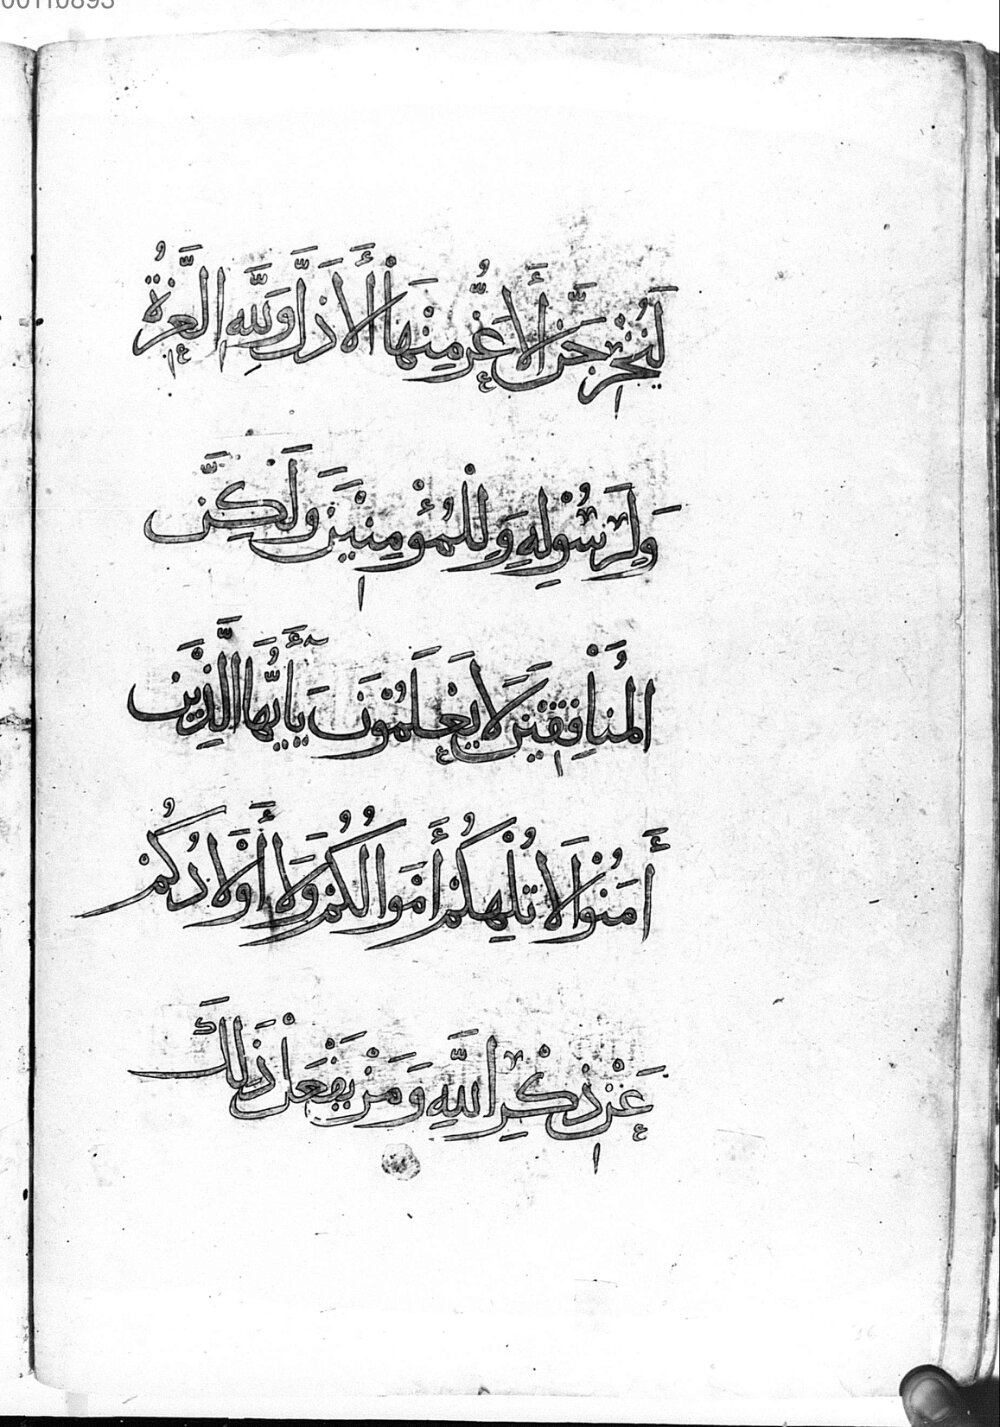 00110893
لَيُخْرِجَنَّ ٱلْأَعَزُّ مِنْهَا ٱلْأَذَلَّ وَلِلَّهِ الْعِزَّةُ
وَلِرَسُوْلِهِ وَلِلْمُؤْمِنِيْنَ وَلَكِنَّ
الْمُنَافِقِيْنَ لَا يَعْلَمُوْنَ يَأَيُّهَا الَّذِيْنَ
أَمَنُوْا لَا تُلْهِكُمْ أَمْوَالُكُمْ وَلَا أَوْلَادُكُمْ
عَنْ ذِكْرِ اللَّهِ وَمَنْ يَفْعَلْ ذَلِكَ